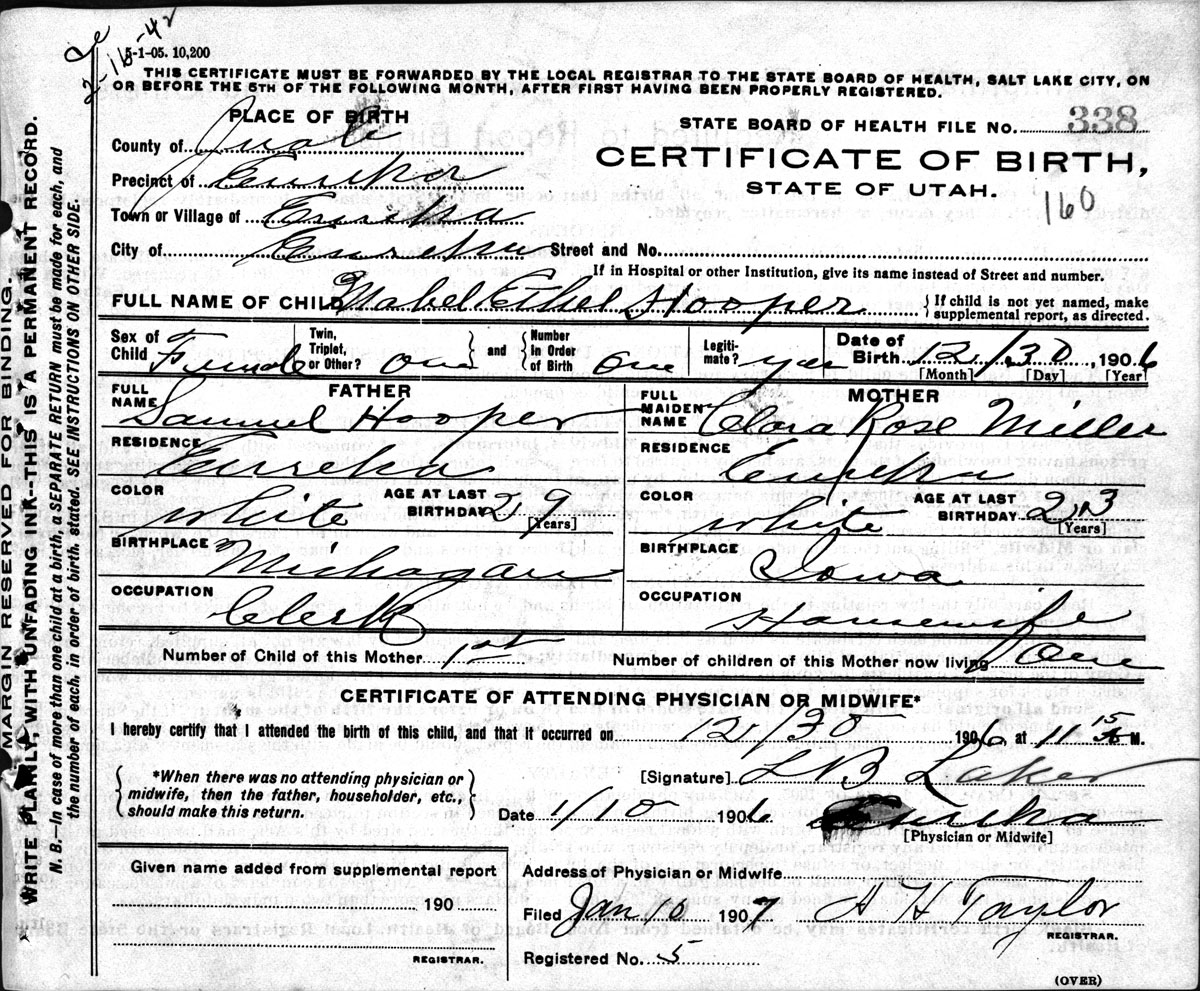 2-16-42
5-1-05. 10,200
THIS CERTIFICATE MUST BE FORWARDED BY THE LOCAL REGISTRAR TO THE STATE BOARD OF HEALTH, SALT LAKE CITY, ON
OR BEFORE THE 5TH OF THE FOLLOWING MONTH, AFTER FIRST HAVING BEEN PROPERLY REGISTERED.
PLACE OF BIRTH
County of Juab
Precinct of Eureka
Town or Village of Eureka
City of Eureka Street and No.
STATE BOARD OF HEALTH FILE NO. 338
CERTIFICATE OF BIRTH,
STATE OF UTAH.
160
If in Hospital or other Institution, give its name instead of Street and number.
FULL NAME OF CHILD Mabel Ethel Hooper { If child is not yet named, make
supplemental report, as directed.
Sex of Child Female Twin, Triplet, or Other? one and Number in Order of Birth one Legiti-mate? yes Date of Birth 12/30, 1906
[Month] [Day] [Year]
FATHER
FULL NAME Samuel Hooper
RESIDENCE Eureka
COLOR White AGE AT LAST BIRTHDAY 29 [Years]
BIRTHPLACE Michagan
OCCUPATION Clerk
MOTHER
FULL MAIDEN NAME Clara Rose Miller
RESIDENCE Eureka
COLOR White AGE AT LAST BIRTHDAY 23 [Years]
BIRTHPLACE Iowa
OCCUPATION Housewife
Number of Child of this Mother 1st Number of children of this Mother now living One
CERTIFICATE OF ATTENDING PHYSICIAN OR MIDWIFE*
I hereby certify that I attended the birth of this child, and that it occurred on 12/30 1906 at 11 15 M.
{ *When there was no attending physician or
midwife, then the father, householder, etc.,
should make this return. }
[Signature] L B Laker
Date 1/10 1906 Eureka
[Physician or Midwife]
Given name added from supplemental report
190
REGISTRAR.
Address of Physician or Midwife
Filed Jan 10 1907 A H Taylor
REGISTRAR.
Registered No. 5
(OVER)
MARGIN RESERVED FOR BINDING.
WRITE PLAINLY, WITH UNFADING INK--THIS IS A PERMANENT RECORD.
N. B. In case of more than one child at a birth, a SEPARATE RETURN must be made for each, and
the number of each, in order of birth, stated. SEE INSTRUCTIONS ON OTHER SIDE.